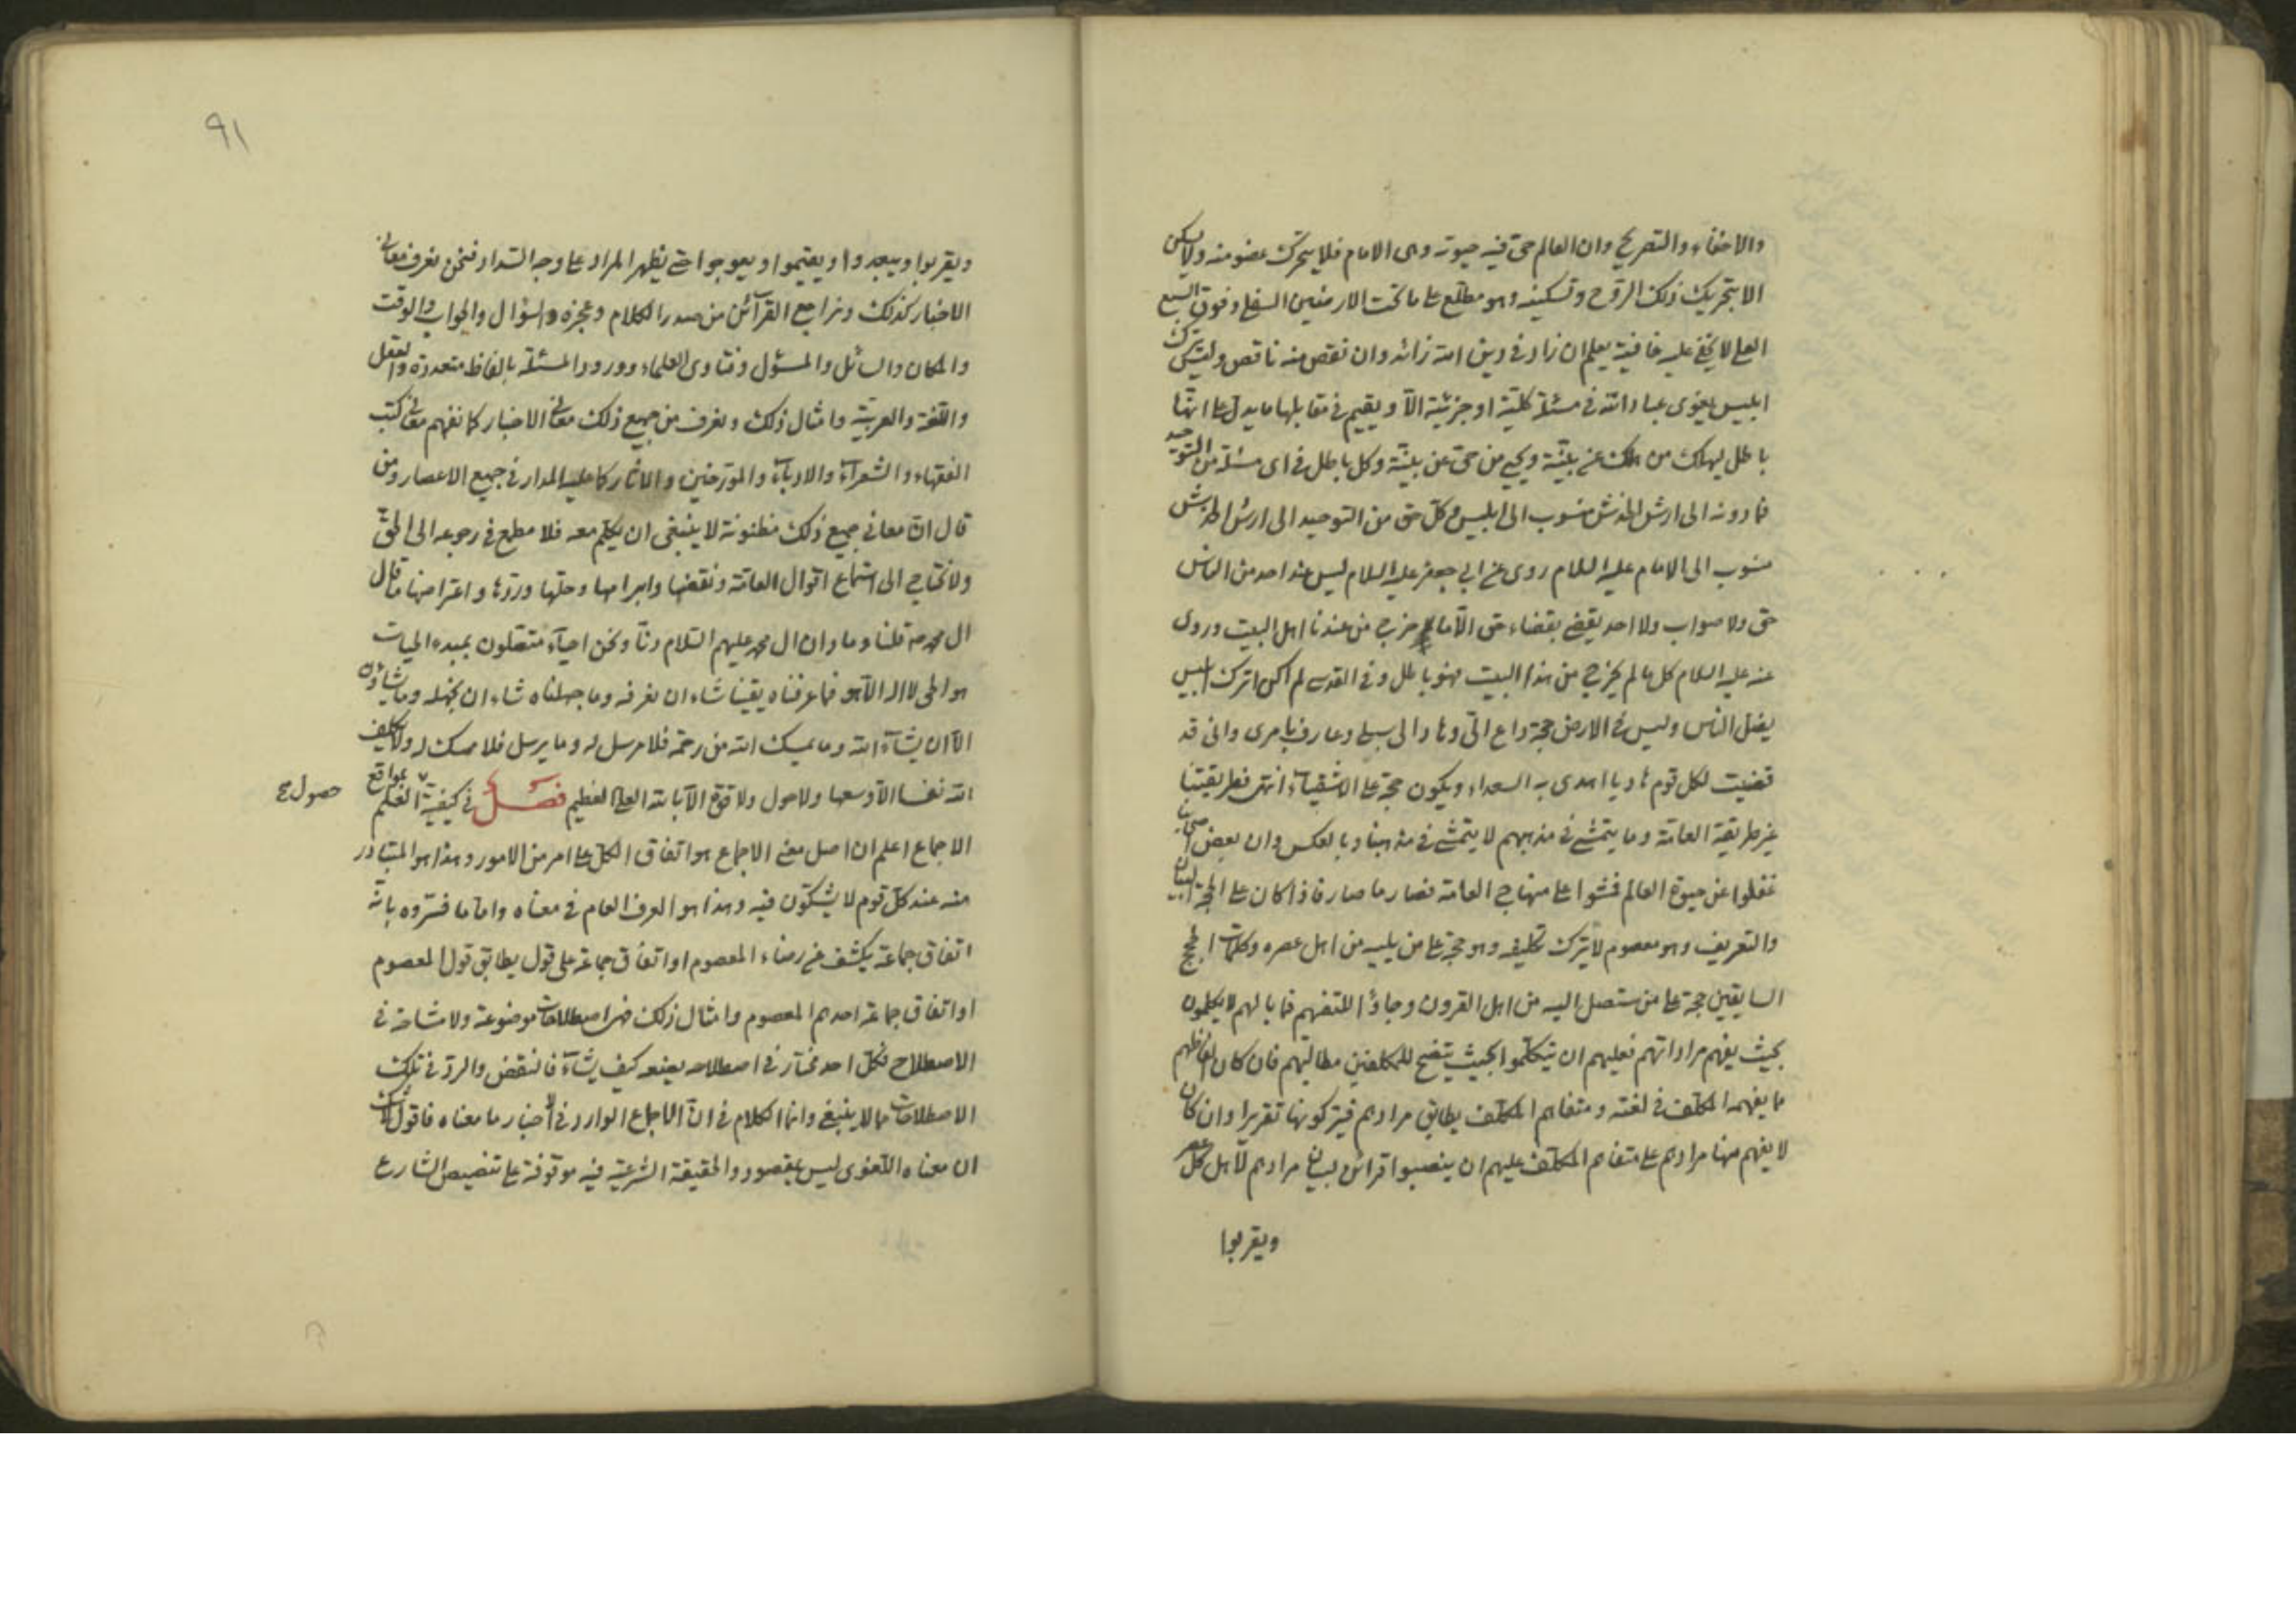 والاخفاء والتصريح وان العالم حى فيه حيوته وهى الامام فلا يتحرك عضو منه ولا يسكن
الا بتحريك ذلك الروح وتسكينه وهو مطلع على ما تحت الارضين السفلى وفوق السبع
العلى لا يخفى عليه خافية يعلم ان زاد فى دين الله زائد وان نقص منه ناقص وليس يترك
ابليس يغوى عباد الله فى مسئلة كلية او جزئية الا ويقيم فى مقابلها ما يدل على انها
باطل ليهلك من هلك عن بينة ويحيى من حى عن بينة وكل باطل فى اى مسئلة من التوحيد
فما دونه الى ارش الخدش منسوب الى ابليس وكل حق من التوحيد الى ارش الخدش
منسوب الى الامام عليه السلام روى عن ابى جعفر عليه السلام ليس عند احد من الناس
حق ولا صواب ولا احد يقضى بقضاء حق الا ما خرج من عندنا اهل البيت وروى
عنه عليه السلام كل ما لم يخرج من هذا البيت فهو باطل وفى القدسى لم اكن اترك ابليس
يضل الناس وليس فى الارض حجة داع الى وهاد الى سبيلى وعارف بامرى وانى قد
قضيت لكل قوم هاديا اهدى به السعداء ويكون حجة على الاشقياء انتهى فطريقتنا
غير طريقة العامة وما يتمشى فى مذهبهم لا يتمشى فى مذهبنا وبالعكس وان بعض اصحابنا
غفلوا عن حيوة العالم فمشوا على منهاج العامة فصار ما صار فاذا كان على الحجة البيان
والتعريف وهو معصوم لا يترك تكليفه وهو حجة على من يليه من اهل عصره وكلمات الحجج
السابقين حجة على من ستصل اليه من اهل القرون وجاؤا للتفهيم فما بالهم لا يكلمون
بحيث يفهم مراداتهم فعليهم ان يتكلموا بحيث يتضح للمكلفين مطالبهم فان كان الفاظهم
ما يفهمه المكلف فى لغته ومتفاهم المكلف يطابق مرادهم فيتركونها تقريرا وان كان
لا يفهم منها مرادهم على متفاهم المكلف عليهم ان ينصبوا قرائن لبيان مرادهم لاهل كل عصر
ويقربوا
91
ويقربوا ويبعدوا ويقيموا ويعوجوا حتى يظهر المراد على وجه السداد فنحن نعرف معانى
الاخبار كذلك ونراجع القرآئن من صدر الكلام وعجزه والسؤال والجواب والوقت
والمكان والسائل والمسئول وفتاوى العلماء وورود المسئلة بالفاظ متعددة والعقل
واللغة والعربية وامثال ذلك ونعرف من جميع ذلك معانى الاخبار كما نفهم معانى كتب
الفقهاء والشعراء والادباء والمورخين والاثار كما عليه المدار فى جميع الاعصار ومن
قال ان معانى جميع ذلك مظنونة لا ينبغى ان يكلم معه فلا مطمع فى رجوعه الى الحق
ولا نحتاج الى استماع اقوال العامة ونقضها وابرامها وحلها وردها واعتراضها ما قال
ال محمد قلنا وما دان ال محمد عليهم السلام دنا ونحن احياء متصلون بمبدء الحيات
هو الحى لا اله الا هو فما عرفناه يقينا شاء ان نعرفه وما جهلناه شاء ان نجهله وما نشاؤن
الا ان يشآء الله وما يمسك الله من رحمة فلا مرسل له وما يرسل فلا ممسك له ولا يكلف
الله نفسا الا وسعها ولا حول ولا قوة الا بالله العلى العظيم فصل فى كيفية العلم بمواقع
حصول
الاجماع اعلم ان اصل معنى الاجماع هو اتفاق الكل على امر من الامور وهذا هو المتبادر
منه عند كل قوم لا يشكون فيه وهذا هو العرف العام فى معناه واما ما فسروه بانه
اتفاق جماعة يكشف عن رضاء المعصوم او اتفاق جماعة على قول يطابق قول المعصوم
او اتفاق جماعة احدهم المعصوم وامثال ذلك فهى اصطلاحات موضوعة ولا مشاحة فى
الاصطلاح فكل احد مختار فى اصطلاحه يضعه كيف يشآء فالنقض والرد فى تلك
الاصطلاحات مما لا ينبغى وانما الكلام فى ان الاجماع الوارد فى الاخبار ما معناه فاقول لا شك
ان معناه اللغوى ليس بمقصود والحقيقة الشرعية فيه موقوفة على تنصيص الشارع